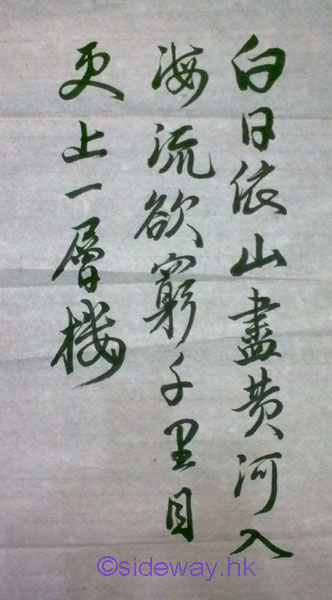 白日依山盡黄河入
海流欲窮千里目
更上一層樓
©sideway.hk